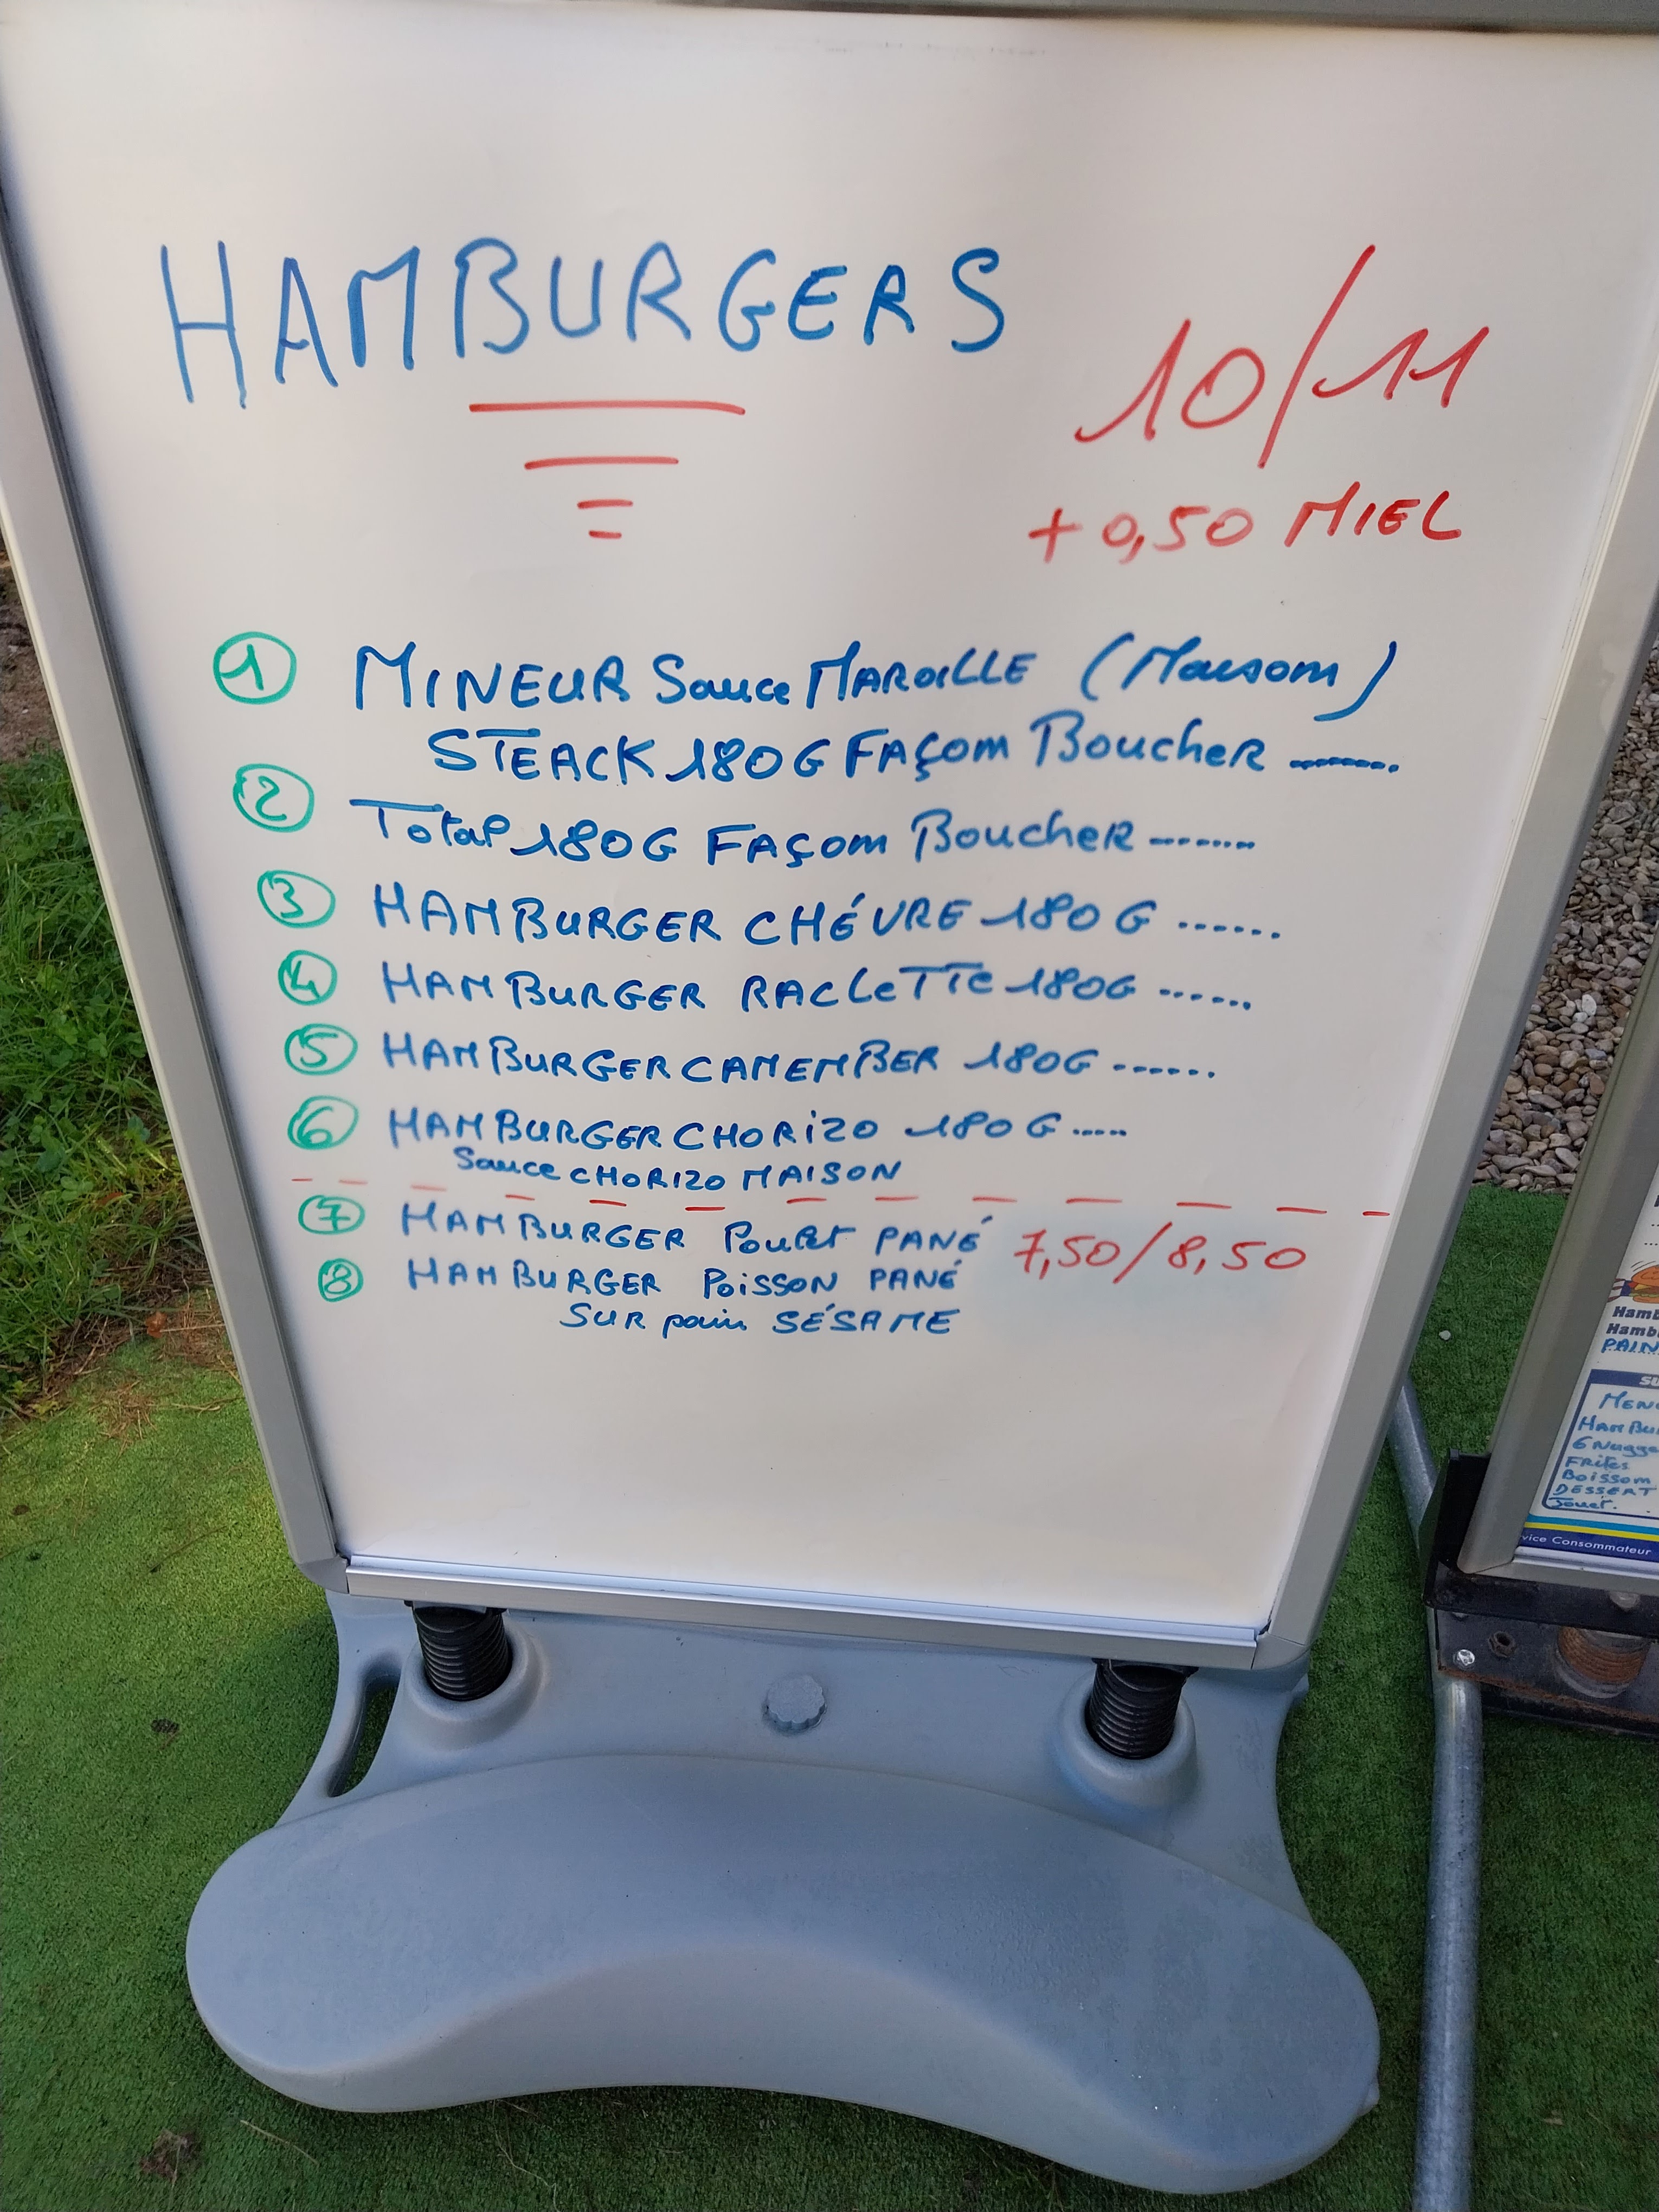 HAMBURGERS
10/11
+0,50 MIEL
1 MINEUR Sauce MAROILLE (Maison)
STEACK 180G FAÇon BoucheR ........
2 Total 180G FAÇon BoucheR .......
3 HAMBURGER CHÉVRE 180G ......
4 HAMBURGER RACLeTTe 180G ......
5 HAMBURGER CAMEMBER 180G ......
6 HAMBURGER CHORiZO 180G .....
Sauce CHORIZO MAISON
7 HAMBURGER Poulet PANÉ 7,50/8,50
8 HAMBURGER POiSSON PANÉ
SUR pain SÉSAME
Hamb
Hamb
PAIN
MENU
HAMBU
6 Nugge
FRites
Boisson
DESSERT
Jouet.
vice Consommateur